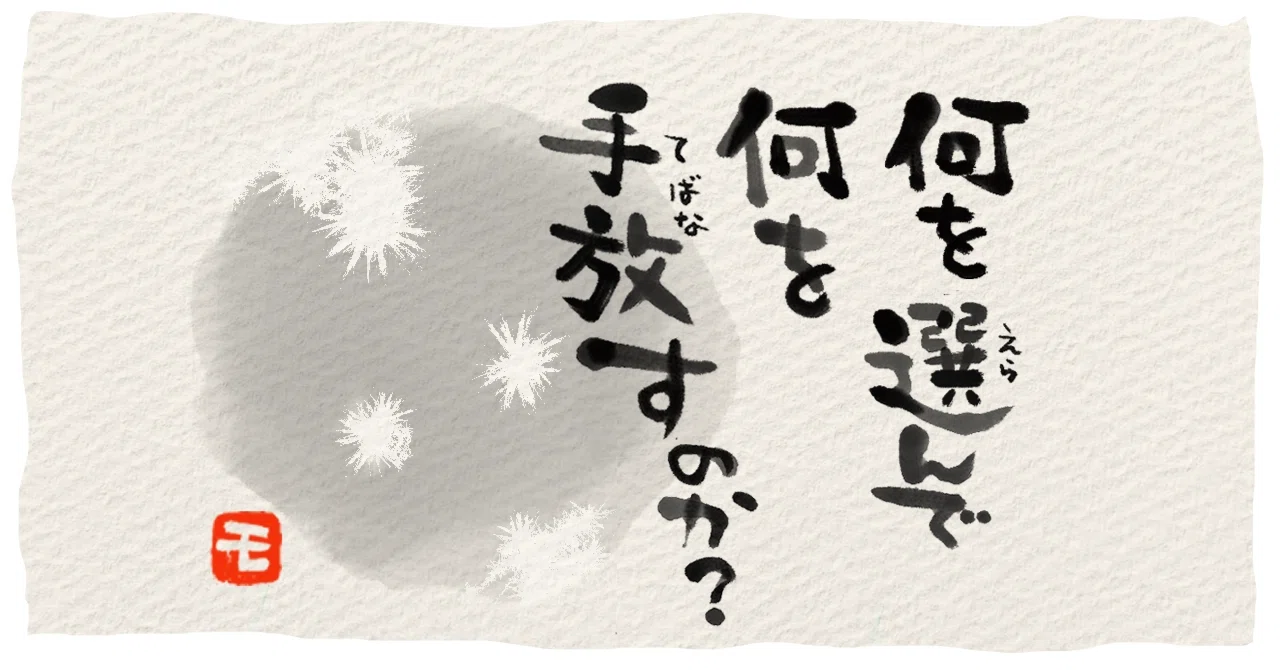 何を選んで
えら
何を
手放すのか?
てばな
モ